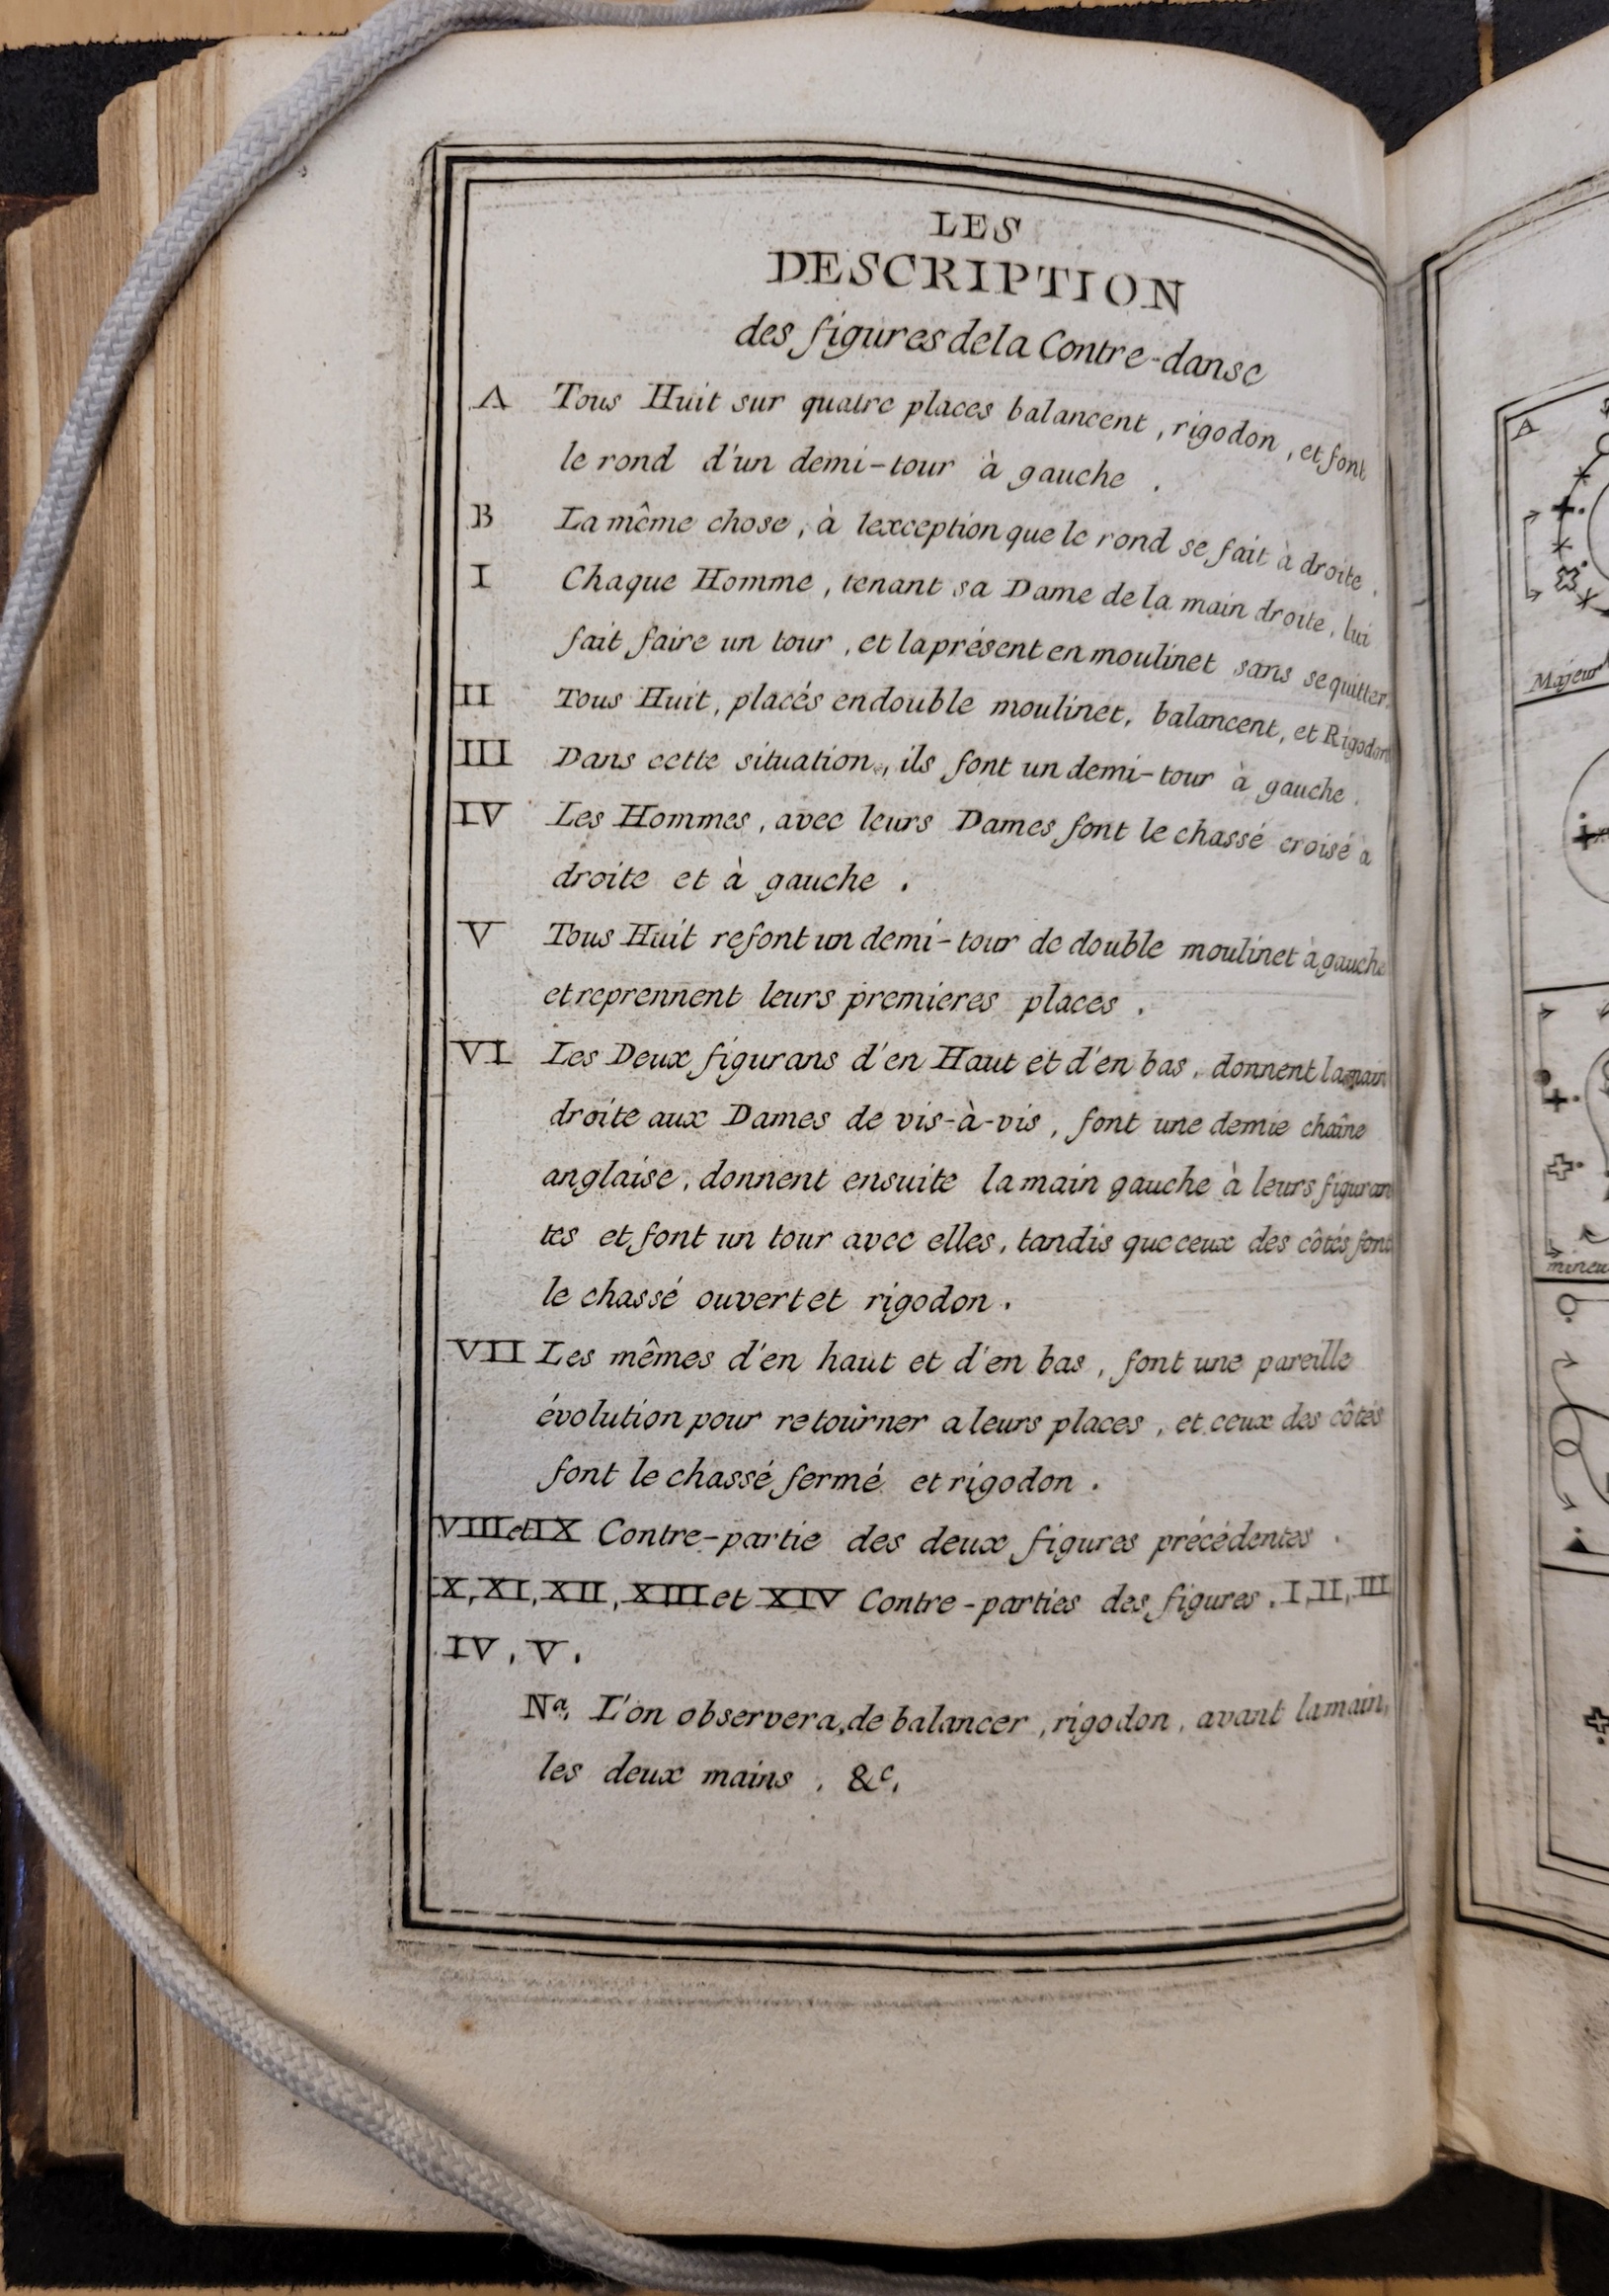 LES
DESCRIPTION
des figures de la Contre-danse
A Tous Huit sur quatre places balancent, rigodon, et font
le rond d'un demi-tour à gauche.
B La même chose, à lexception que le rond se fait à droite.
I Chaque Homme, tenant sa Dame de la main droite, lui
fait faire un tour, et la présent en moulinet sans se quitter.
II Tous Huit, placés en double moulinet, balancent, et Rigodon
III Dans cette situation, ils font un demi-tour à gauche.
IV Les Hommes, avec leurs Dames font le chassé croisé a
droite et à gauche.
V Tous Huit refont un demi-tour de double moulinet à gauche
et reprennent leurs premieres places.
VI Les Deux figurans d'en Haut et d'en bas, donnent la main
droite aux Dames de vis-à-vis, font une demie chaîne
anglaise, donnent ensuite la main gauche à leurs figuran
tes et font un tour avec elles, tandis que ceux des côtés font
le chassé ouvert et rigodon.
VII Les mêmes d'en haut et d'en bas, font une pareille
évolution pour retourner a leurs places, et ceux des côtés
font le chassé fermé et rigodon.
VIII et IX Contre-partie des deux figures précédentes.
X, XI, XII, XIII et XIV Contre-parties des figures, I, II, III
IV, V.
Na. L'on observera, de balancer, rigodon, avant la main,
les deux mains, &c.
A
Majeur